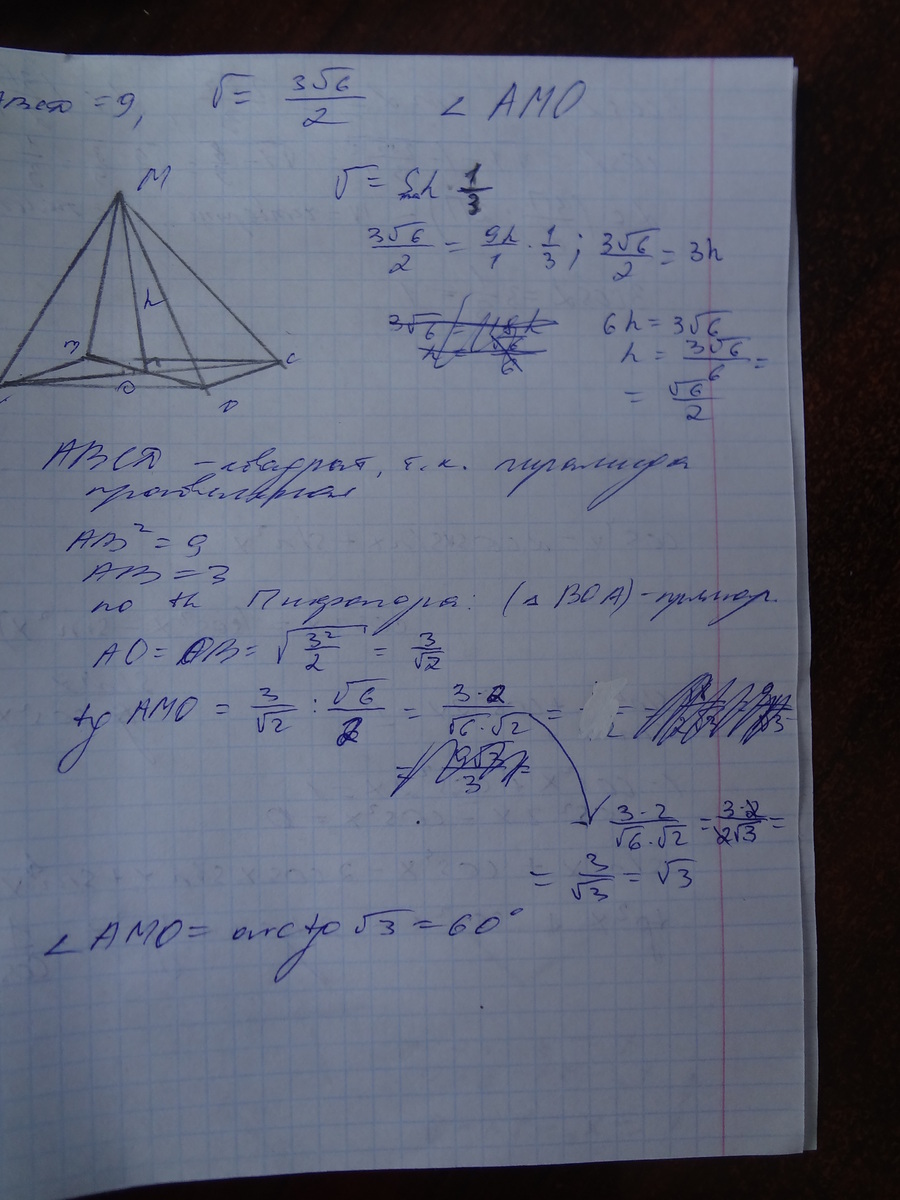 ABCD = 9, V = 3√6/2 ∠ AMO
M
V = Sh · 1/3
3√6/2 = 9h/1 · 1/3 ; 3√6/2 = 3h
h
6h = 3√6
B
C
h = 3√6/6 =
O
D
= √6/2
ABCD - квадрат, т.к. пирамида
правильная
AB² = 9
AB = 3
по th Пифагора: (△ BOA) - прямоуг.
AO = OB = √(3²/2) = 3/√2
tg AMO = 3/√2 : √6/2 = 3·2/(√6·√2) =
3·2/(√6·√2) = 3·2/(2√3) =
= 3/√3 = √3
∠ AMO = arctg √3 = 60°